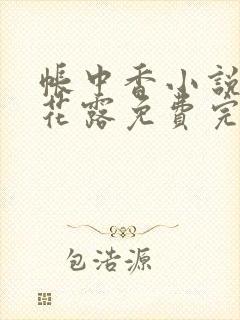 帳中香小說
花露免費完
包浩源